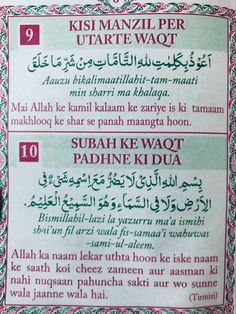 9
KISI MANZIL PER
UTARTE WAQT
اَعُوْذُ بِكَلِمٰتِ اللهِ التَّامَّاتِ مِنْ شَرِّ مَا خَلَقَ
Aauzu bikalimaatillahit-tam-maati
min sharri ma khalaqa.
Mai Allah ke kamil kalaam ke zariye is ki tamaam
makhlooq ke shar se panah maangta hoon.
10
SUBAH KE WAQT
PADHNE KI DUA
بِسْمِ اللهِ الَّذِيْ لَا يَضُرُّ مَعَ اسْمِهٖ شَيْءٌ فِى
الْاَرْضِ وَلَا فِى السَّمَاءِ وَهُوَ السَّمِيْعُ الْعَلِيْمُ.
Bismillahil-lazi la yazurru ma'a ismihi
shai'un fil arzi wala fis-samaa'i wahuwas
-sami-ul-aleem.
Allah ka naam lekar uthta hoon ke iske naam
ke saath koi cheez zameen aur aasman ki
nahi nuqsaan pahuncha sakti aur wo sunne
wala jaanne wala hai.
(Tirmizi)